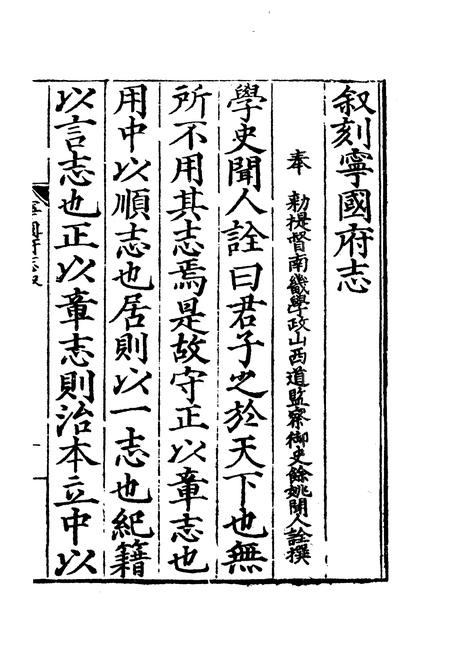 叙刻寧國府志
奉 勅提督南畿學政山西道監察御史餘姚聞人詮撰
學史聞人詮曰君子之於天下也無
所不用其志焉是故守正以章志也
用中以順志也居則以一志也紀籍
以言志也正以章志則治本立中以
寧國府志叙
一